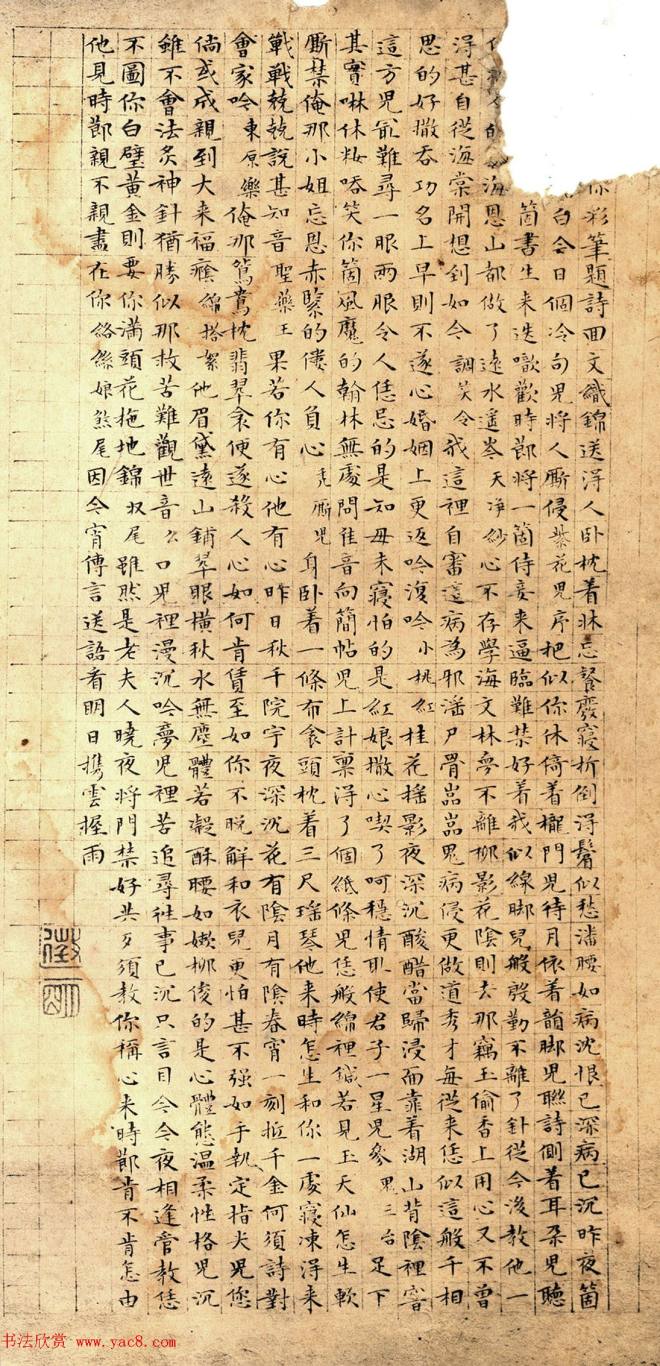 你彩筆題詩回文織錦送得人卧枕着牀忘餐廢寢折倒得鬢似愁潘腰如病沈恨已深病已沉昨夜箇
白今日個冷句兒將人厮侵紫花兒序把似你休倚着櫳門兒待月依着韻脚兒聯詩側着耳朶兒聽
箇書生来迭噷歡時莭將一箇侍妾来逼臨難禁好着我似線脚兒般殷勤不離了針從今後教他一
海恩山都做了遠水遥岑天净紗心不存學海文林夢不離柳影花陰則去那竊玉偷香上用心又不曾
得甚自從海棠開想到如今調笑令我這裡自審這病為邪滛尸骨喦喦鬼病侵更做道秀才每從来恁似這般千相
思的好撒吞功名上早則不遂心婚姻上更返吟復吟小桃紅桂花摇影夜深沉酸醋當歸浸靣靠着湖山背陰裡窨
這方兒最難尋一服兩服令人恁忌的是知母未寢怕的是紅娘撒心喫了呵穩情取使君子一星兒參鬼三台足下
其實啉休粧唔笑你箇風魔的翰林無處問佳音向簡帖兒上計稟得了個紙條兒恁般綿裡鍼若見玉天仙怎生軟
厮禁俺那小姐忘恩赤緊的僂人負心禿厮兒身卧着一條布衾頭枕着三尺瑶琴他来時怎生和你一處寢凍得来
戰戰兢兢說甚知音聖藥王果若你有心他有心昨日秋千院宇夜深沉花有陰月有陰春宵一刻抵千金何須詩對
會家吟東原樂俺那鴛鴦枕翡翠衾便遂殺人心如何肯賃至如你不脱觧和衣兒更怕甚不强如手執定指尖兒恁
倘或成親到大来福癊綿搭絮他眉黛遠山鋪翠眼橫秋水無塵體若凝酥腰如嫩柳俊的是心體態温柔性格兒沉
雖不會法灸神針猶勝似那救苦難觀世音幺口兒裡漫沉吟夢兒裡苦追尋往事已沉只言目今今夜相逢管教恁
不圖你白璧黄金則要你滿頭花拖地錦収尾雖然是老夫人曉夜將門禁好共歹須教你稱心来時莭肯不肯怎由
他見時莭親不親盡在你絡絲娘煞尾因今宵傳言送語看明日攜雲握雨
徵
明
书法欣赏 www.yac8.com